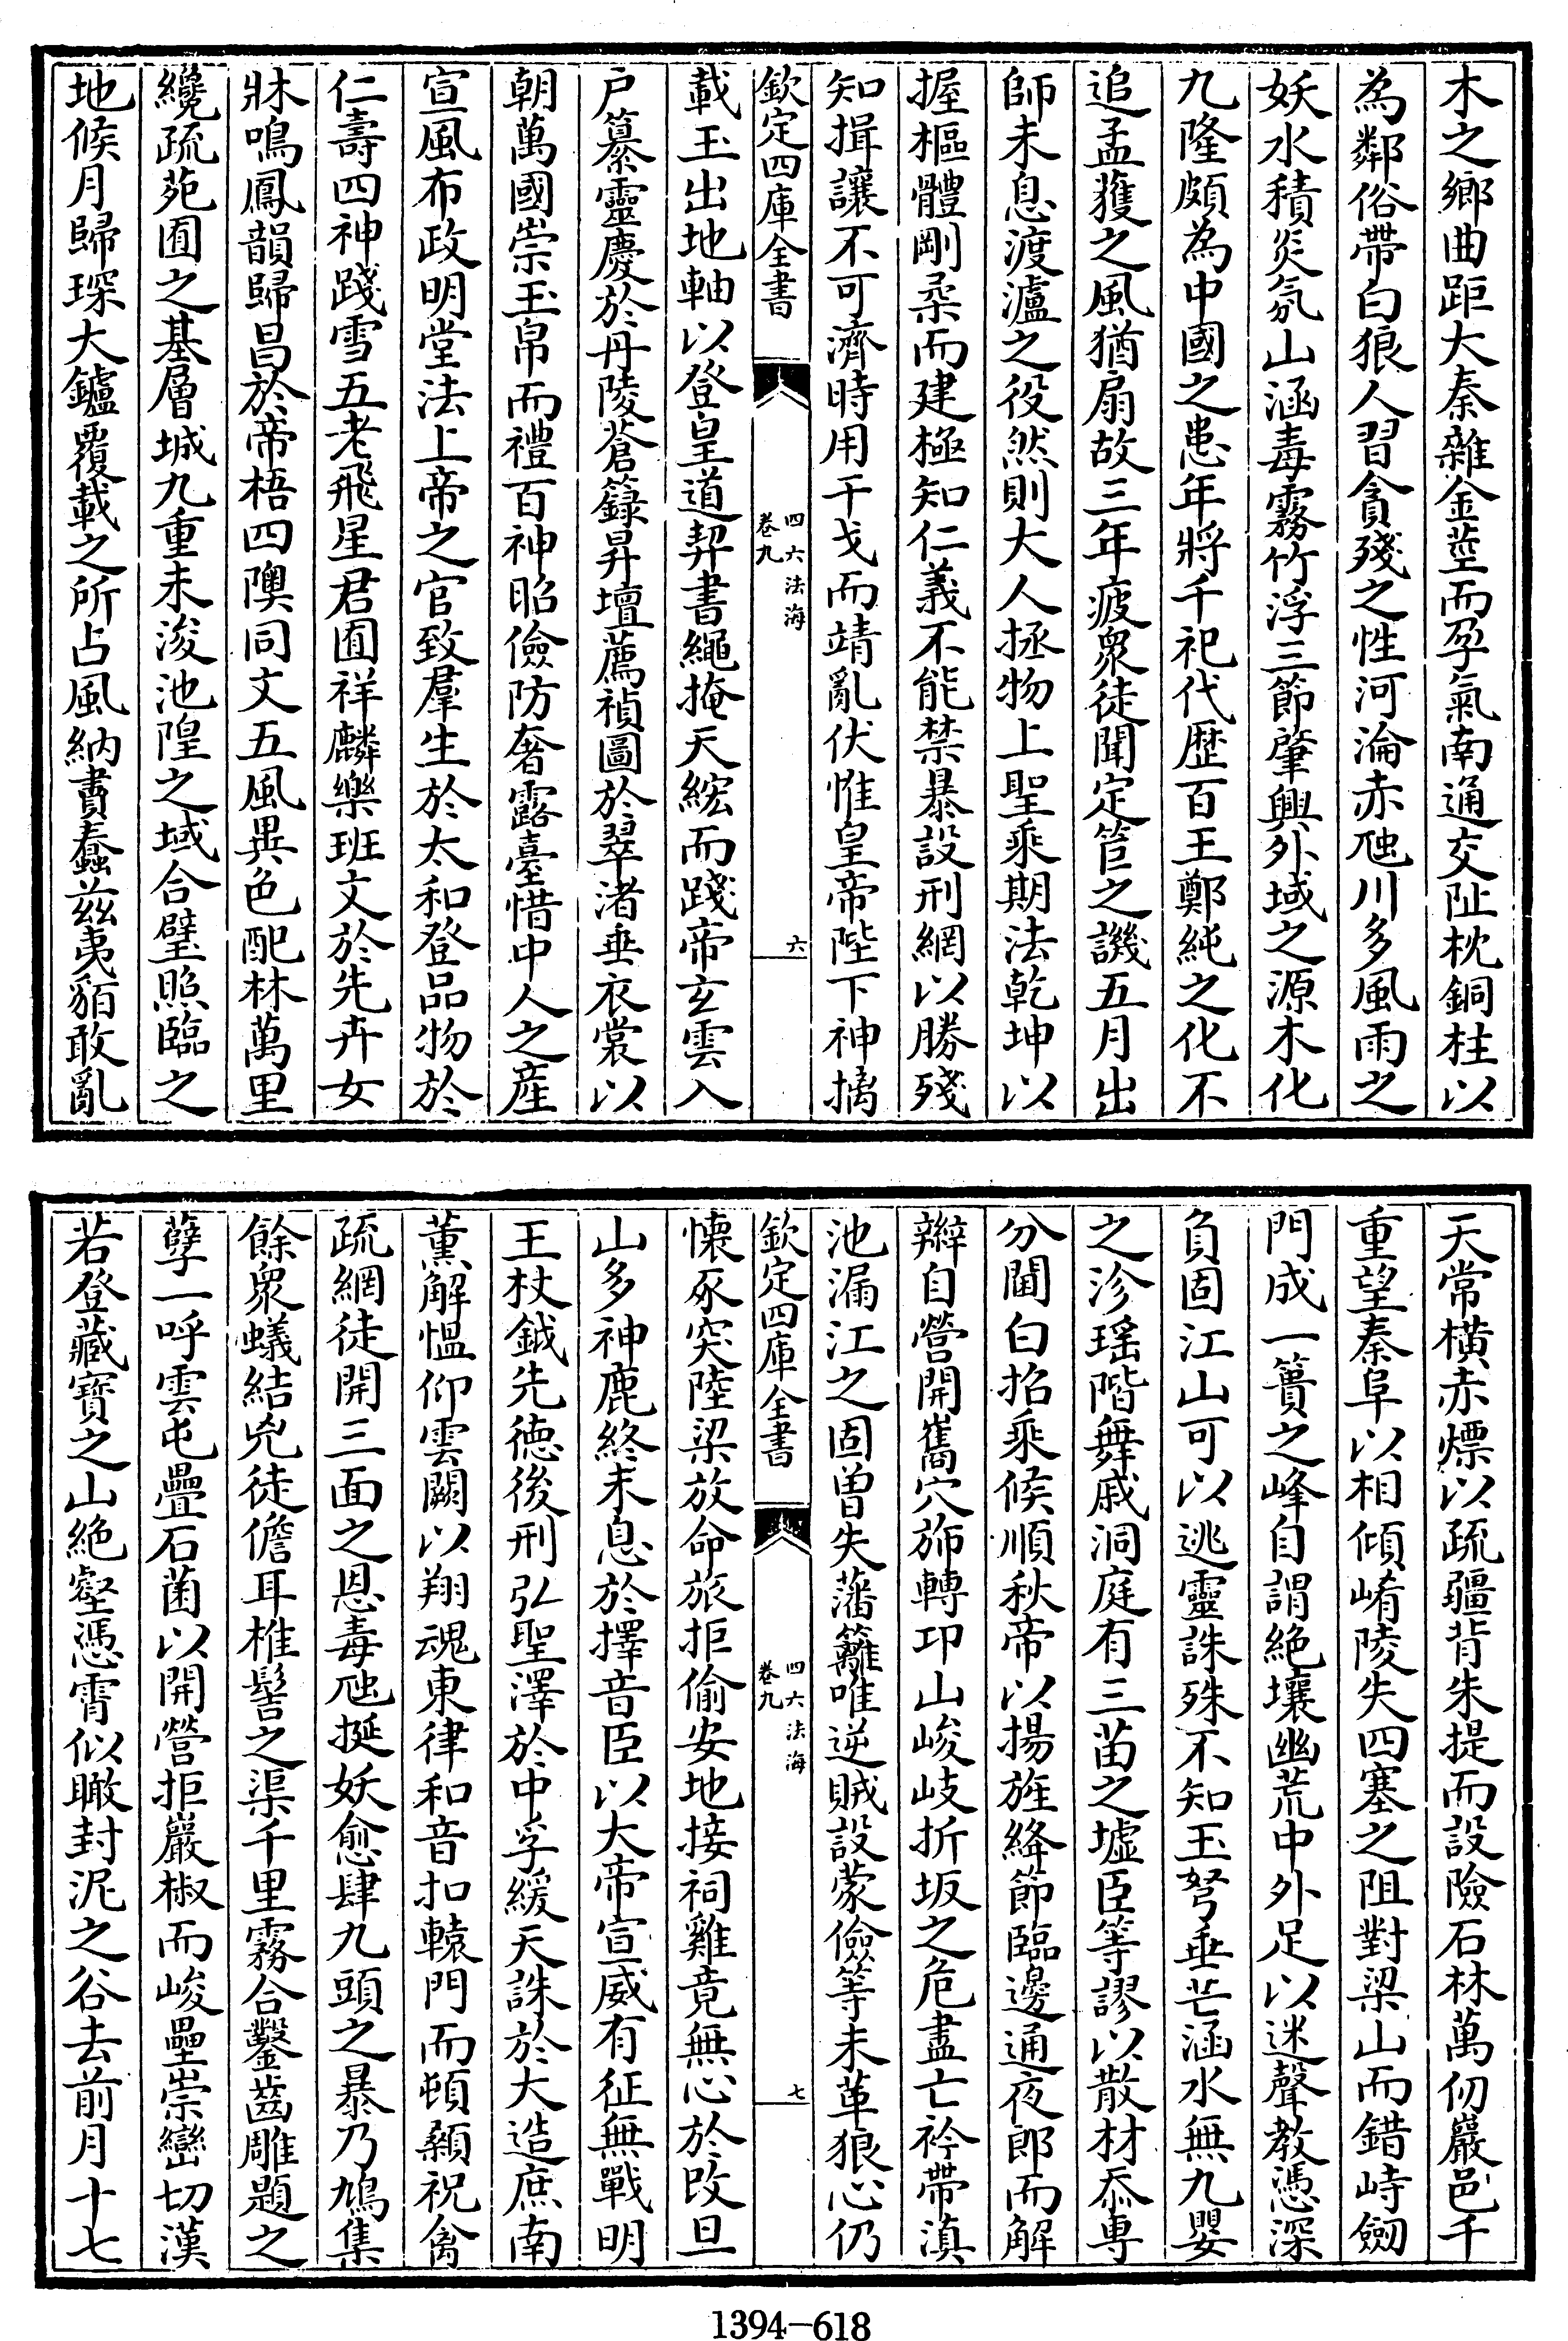 木之鄉曲距大秦雜金莖而孕氣南通交阯枕銅柱以
為鄰俗帶白狼人習貪殘之性河淪赤虺川多風雨之
妖水積炎氛山涵毒霧竹浮三節肇興外域之源木化
九隆頗為中國之患年將千祀代歴百王鄭純之化不
追孟獲之風猶扇故三年疲衆徒聞定笮之譏五月出
師未息渡瀘之役然則大人拯物上聖乘期法乾坤以
握樞體剛柔而建極知仁義不能禁暴設刑網以勝殘
知揖讓不可濟時用干戈而靖亂伏惟皇帝陛下神摛
欽定四庫全書
四六法海
卷九
六
載玉出地軸以登皇道契書繩掩天綋而踐帝玄雲入
戶纂靈慶於丹陵蒼籙昇壇薦禎圖於翠渚垂衣裳以
朝萬國崇玉帛而禮百神昭儉防奢露臺惜中人之産
宣風布政明堂法上帝之官致羣生於太和登品物於
仁壽四神踐雪五老飛星君囿祥麟樂班文於先卉女
牀鳴鳳韻歸昌於帝梧四隩同文五風異色配林萬里
纔疏苑囿之基層城九重未浚池隍之域合璧照臨之
地候月歸琛大鑪覆載之所占風納賮蠢兹夷貊敢亂
天常橫赤熛以疏疆背朱提而設險石林萬仞巖邑千
重望秦阜以相傾崤陵失四塞之阻對梁山而錯峙劒
門成一簣之峰自謂絶壤幽荒中外足以迷聲教憑深
負固江山可以逃靈誅殊不知玉弩垂芒涵水無九嬰
之沴瑶階舞戚洞庭有三苗之墟臣等謬以散材忝専
分閫白招乘候順秋帝以揚旌絳節臨邊通夜郎而解
辮自營開嶲穴斾轉卭山峻岐折坂之危盡亡衿帶滇
池漏江之固曾失藩籬唯逆賊設蒙儉等未革狼心仍
欽定四庫全書
四六法海
卷九
七
懐豕突陸梁放命旅拒偷安地接祠雞竟無心於改旦
山多神鹿終未息於擇音臣以大帝宣威有征無戰明
王杖鉞先德後刑弘聖澤於中孚緩天誅於大造庶南
薫解慍仰雲闕以翔魂東律和音扣轅門而頓顙祝禽
疏網徒開三面之恩毒虺挻妖愈肆九頭之暴乃鳩集
餘衆蟻結兇徒儋耳椎髻之渠千里霧合鑿齒雕題之
孽一呼雲屯疊石菌以開營拒巖椒而峻壘崇巒切漢
若登藏寶之山絶壑憑霄似瞰封泥之谷去前月十七
1394-618